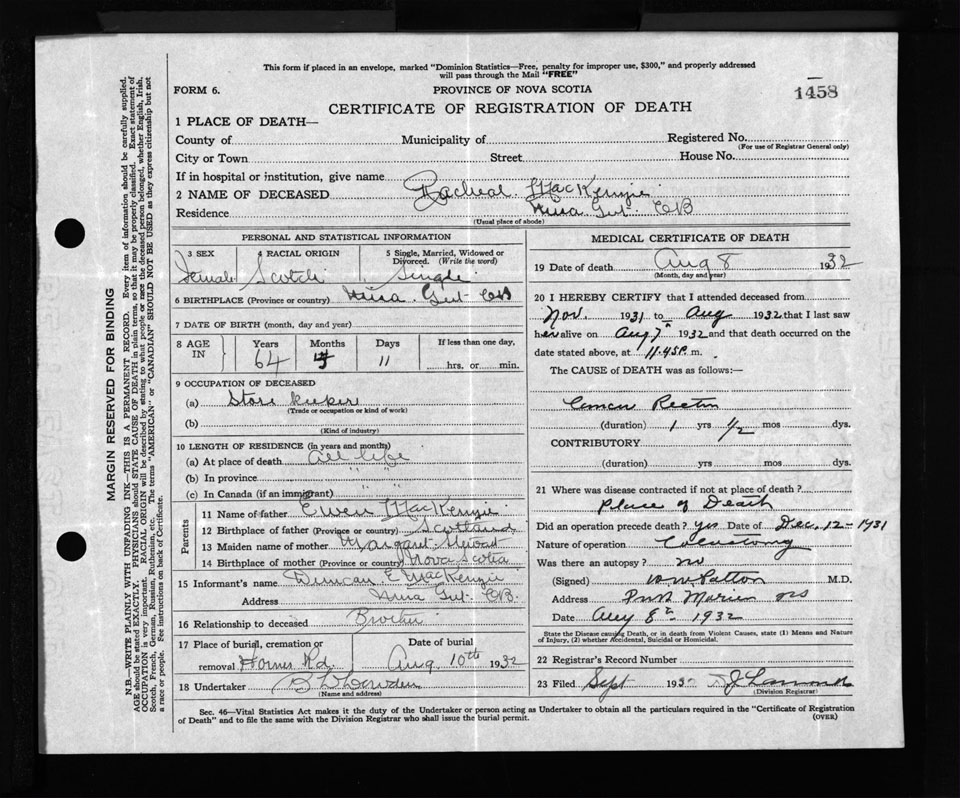 This form if placed in an envelope, marked "Dominion Statistics—Free, penalty for improper use, $300," and properly addressed
will pass through the Mail "FREE"
FORM 6.
PROVINCE OF NOVA SCOTIA
1458
CERTIFICATE OF REGISTRATION OF DEATH
1 PLACE OF DEATH—
County of Municipality of Registered No.
(For use of Registrar General only)
City or Town Street House No.
If in hospital or institution, give name
2 NAME OF DECEASED Racheal MacKenzie
Residence Mira Gut CB
(Usual place of abode)
PERSONAL AND STATISTICAL INFORMATION
3 SEX 4 RACIAL ORIGIN 5 Single, Married, Widowed or
Divorced. (Write the word)
Female Scotch Single
6 BIRTHPLACE (Province or country) Mira Gut CB
7 DATE OF BIRTH (month, day and year)
8 AGE IN Years Months Days If less than one day,
64 11 hrs. or min.
9 OCCUPATION OF DECEASED
(a) Store keeper
(Trade or occupation or kind of work)
(b)
(Kind of industry)
10 LENGTH OF RESIDENCE (in years and months)
(a) At place of death all life
(b) In province " "
(c) In Canada (if an immigrant) " "
Parents
11 Name of father Ewen MacKenzie
12 Birthplace of father (Province or country) Scotland
13 Maiden name of mother Margaret Stewart
14 Birthplace of mother (Province or country) Nova Scotia
15 Informant's name Duncan E MacKenzie
Address Mira Gut CB.
16 Relationship to deceased Brother
17 Place of burial, cremation or Date of burial
removal Hornes Rd Aug 10th 1932
18 Undertaker
(Name and address)
MEDICAL CERTIFICATE OF DEATH
19 Date of death Aug 8 1932
(Month, day and year)
20 I HEREBY CERTIFY that I attended deceased from
Nov. 1931 to Aug 1932 that I last saw
her alive on Aug 7th 1932 and that death occurred on
date stated above, at 11.45P. m.
The CAUSE of DEATH was as follows:—
Cancer Rectum
(duration) 1 yrs 1/2 mos dys.
CONTRIBUTORY
(duration) yrs mos dys.
21 Where was disease contracted if not at place of death?
Place of Death
Did an operation precede death? yes Date of Dec. 12-1931
Nature of operation Colostomy
Was there an autopsy? no
(Signed) Patton M.D.
Address Port Morien NS
Date Aug 8th 1932
State the Disease causing Death, or in death from Violent Causes, state (1) Means and Nature
of Injury, (2) whether Accidental, Suicidal or Homicidal.
22 Registrar's Record Number
23 Filed Sept 1932
(Division Registrar)
Sec. 46—Vital Statistics Act makes it the duty of the Undertaker or person acting as Undertaker to obtain all the particulars required in the "Certificate of Registration
of Death" and to file the same with the Division Registrar who shall issue the burial permit. (OVER)
MARGIN RESERVED FOR BINDING
N.B.—WRITE PLAINLY WITH UNFADING INK—THIS IS A PERMANENT RECORD. Every item of information should be carefully supplied.
AGE should be stated EXACTLY. PHYSICIANS should STATE CAUSE OF DEATH in plain terms, so that it may be properly classified. Exact statement of
OCCUPATION is very important. RACIAL ORIGIN will be described by stating to what people or race the deceased person belonged, whether English, Irish,
Scotch, French, German, Russian, Ruthenian, etc. The terms "AMERICAN" or "CANADIAN" SHOULD NOT BE USED as they express citizenship but not
a race or people. See instructions on back of Certificate.